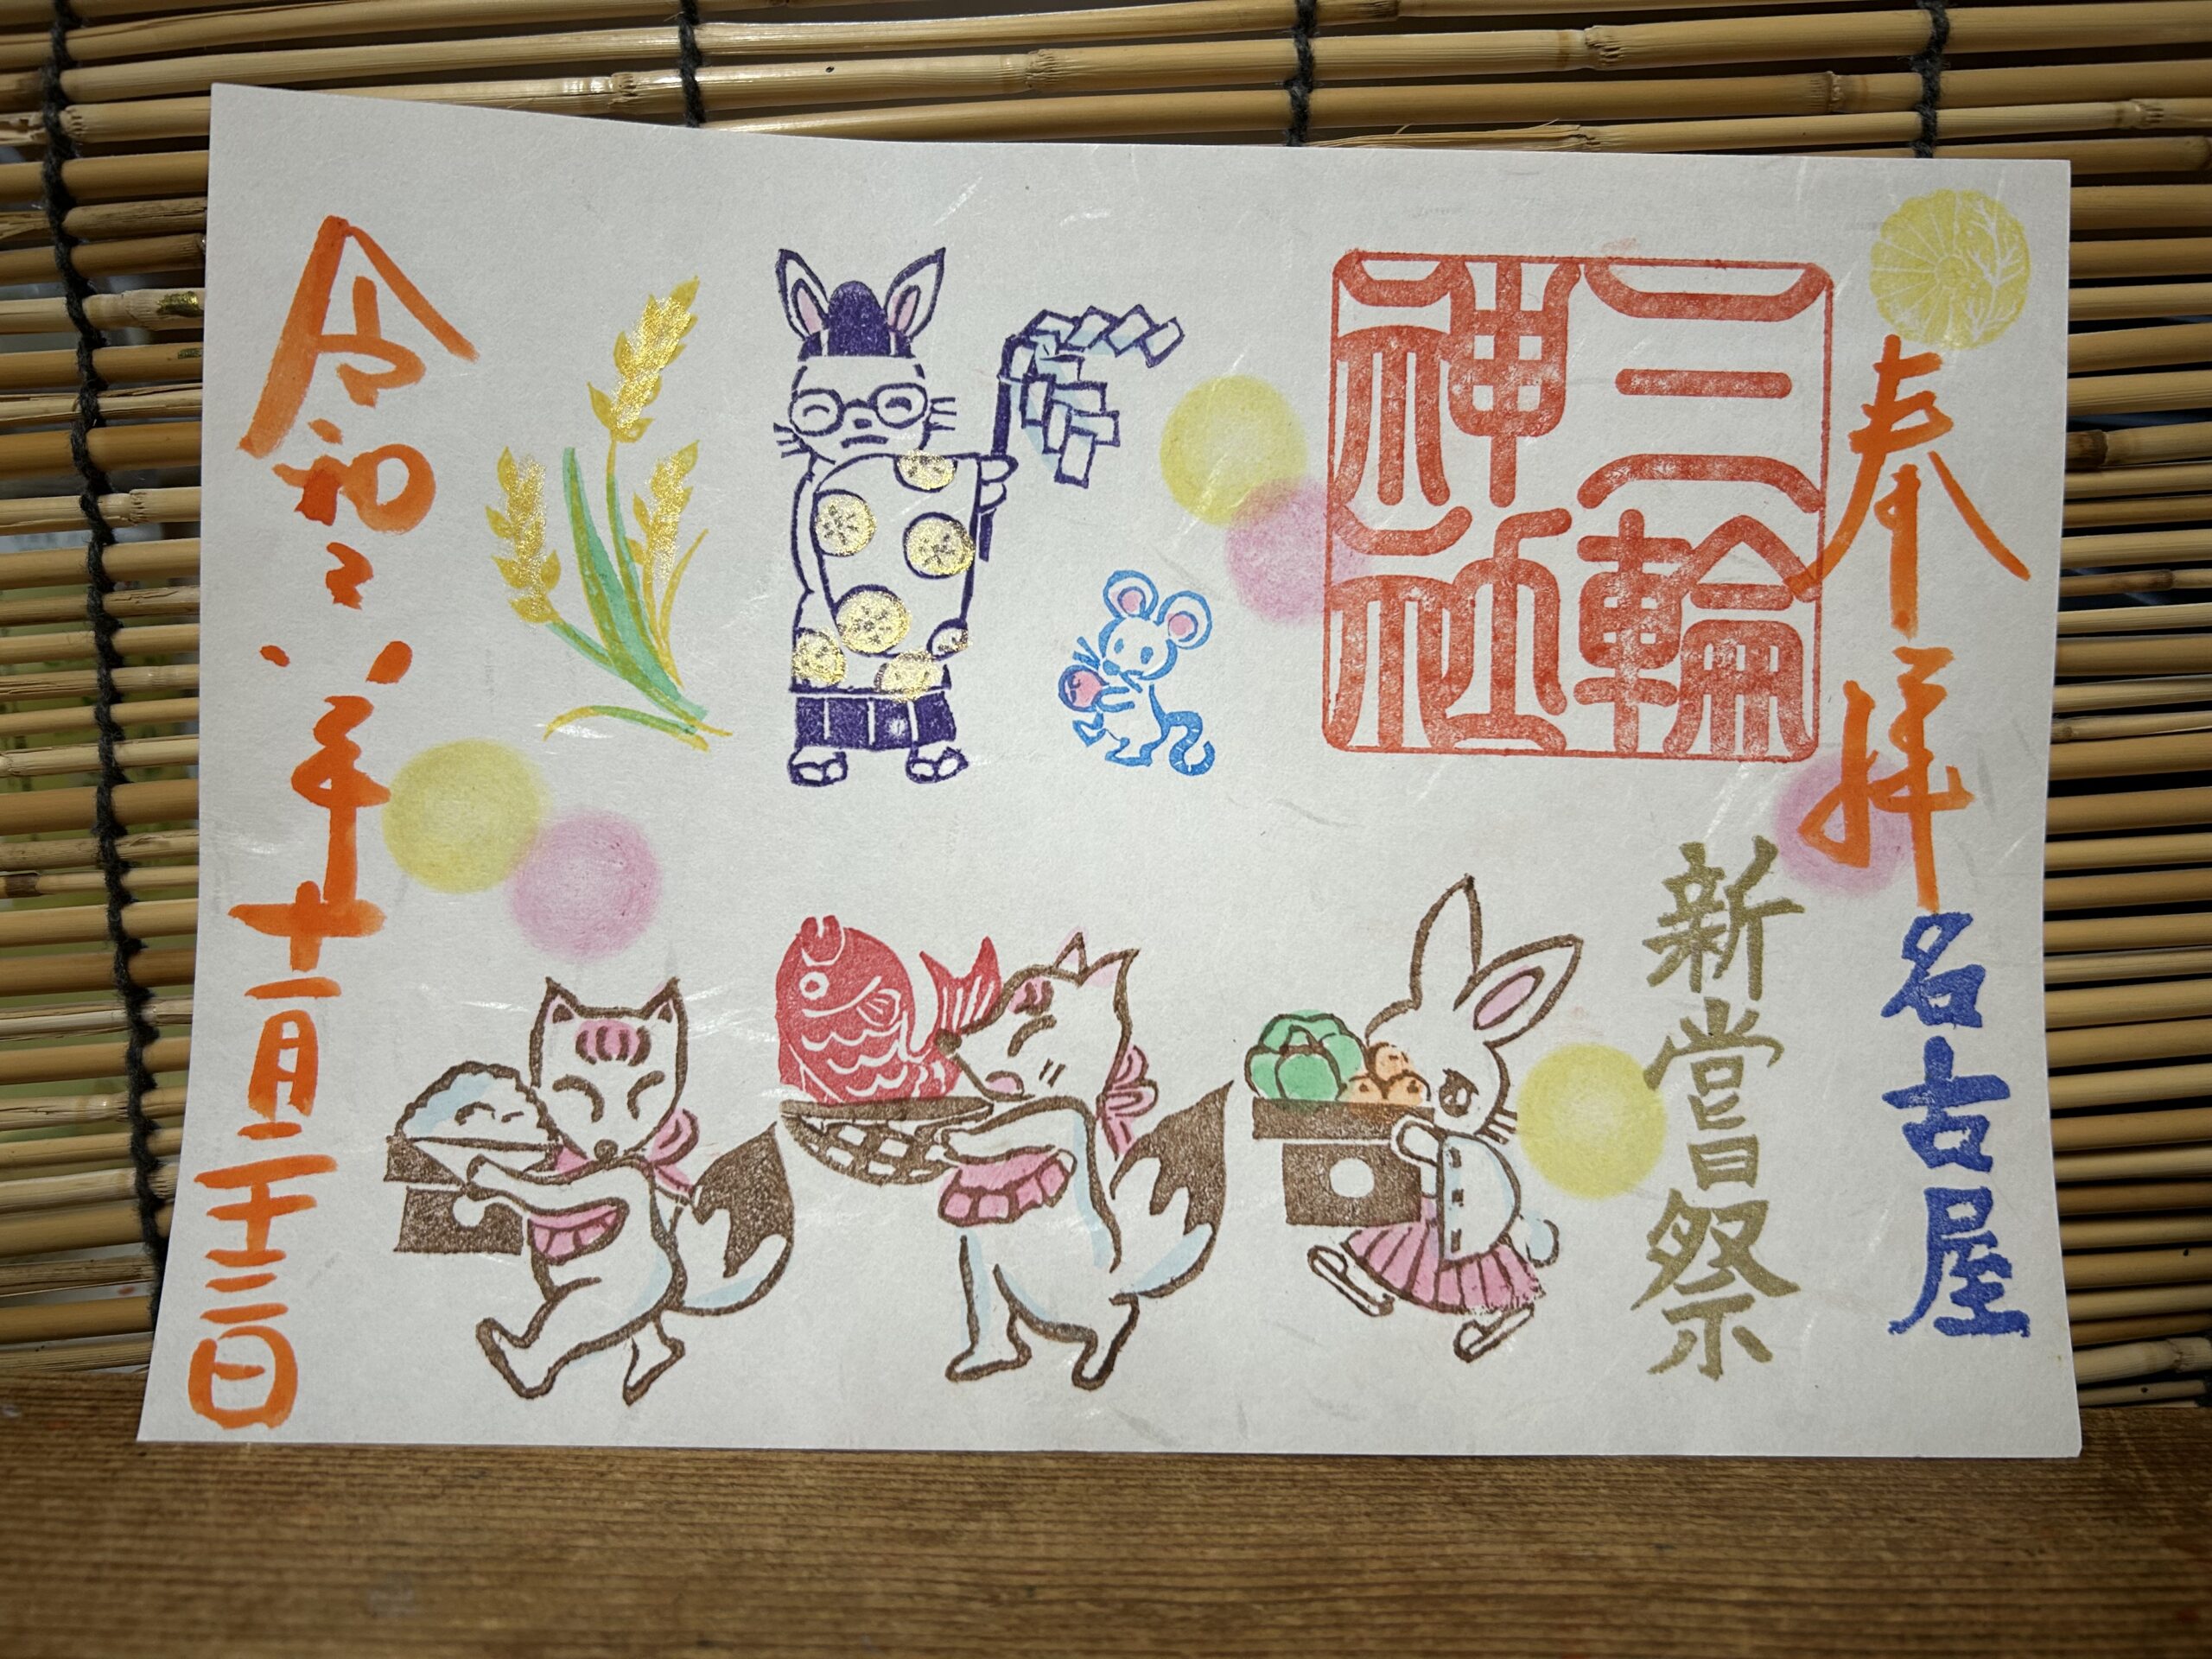 奉拝
名古屋
三輪
神社
新嘗祭
令和六年十一月二十三日